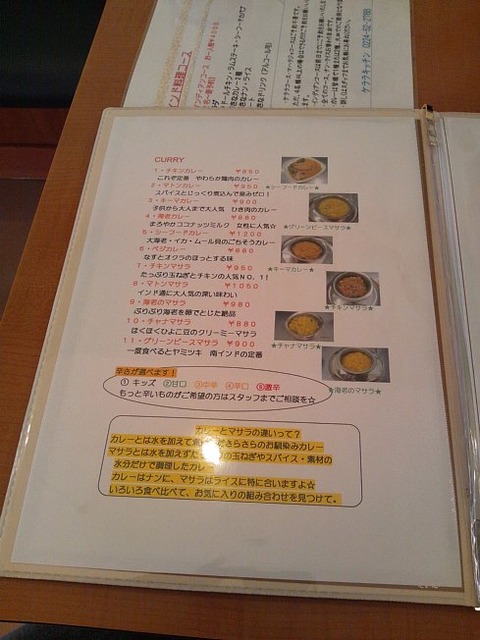 CURRY
1・チキンカレー ¥850
これぞ定番 やわらか鶏肉のカレー
2・マトンカレー ¥950
スパイスとじっくり煮込んで臭みゼロ！
3・キーマカレー ¥900
子供から大人まで大人気 ひき肉のカレー
4・海老カレー ¥880
まろやかココナッツミルク 女性に人気☆
5・シーフードカレー ¥1200
大海老・イカ・ムール貝のごちそうカレー
6・ベジカレー ¥880
なすとオクラのほっとする味
7・チキンマサラ ¥950
たっぷり玉ねぎとチキンの人気NO．1！
8・マトンマサラ ¥1050
インド通に大人気の深い味わい
9・海老のマサラ ¥980
ぷりぷり海老を卵でとじた絶品
10・チャナマサラ ¥880
ほくほくひよこ豆のクリーミーマサラ
11・グリーンピースマサラ ¥900
一度食べるとヤミツキ 南インドの定番
★シーフードカレー★
★グリーンピースマサラ★
★キーマカレー★
★チキンマサラ★
★チャナマサラ★
★海老のマサラ★
辛さが選べます！
①キッズ ②甘口 ③中辛 ④辛口 ⑤激辛
もっと辛いものがご希望の方はスタッフまでご相談を☆
カレーとマサラの違いって？
カレーとは水を加えて さらさらのお馴染みカレー
マサラとは水を加えず の玉ねぎやスパイス・素材の
水分だけで調理したカレー
カレーはナンに、マサラはライスに特に合いますよ☆
いろいろ食べ比べて、お気に入りの組み合わせを見つけて。
インド料理コース
ケララキッチン 0224-52-2788